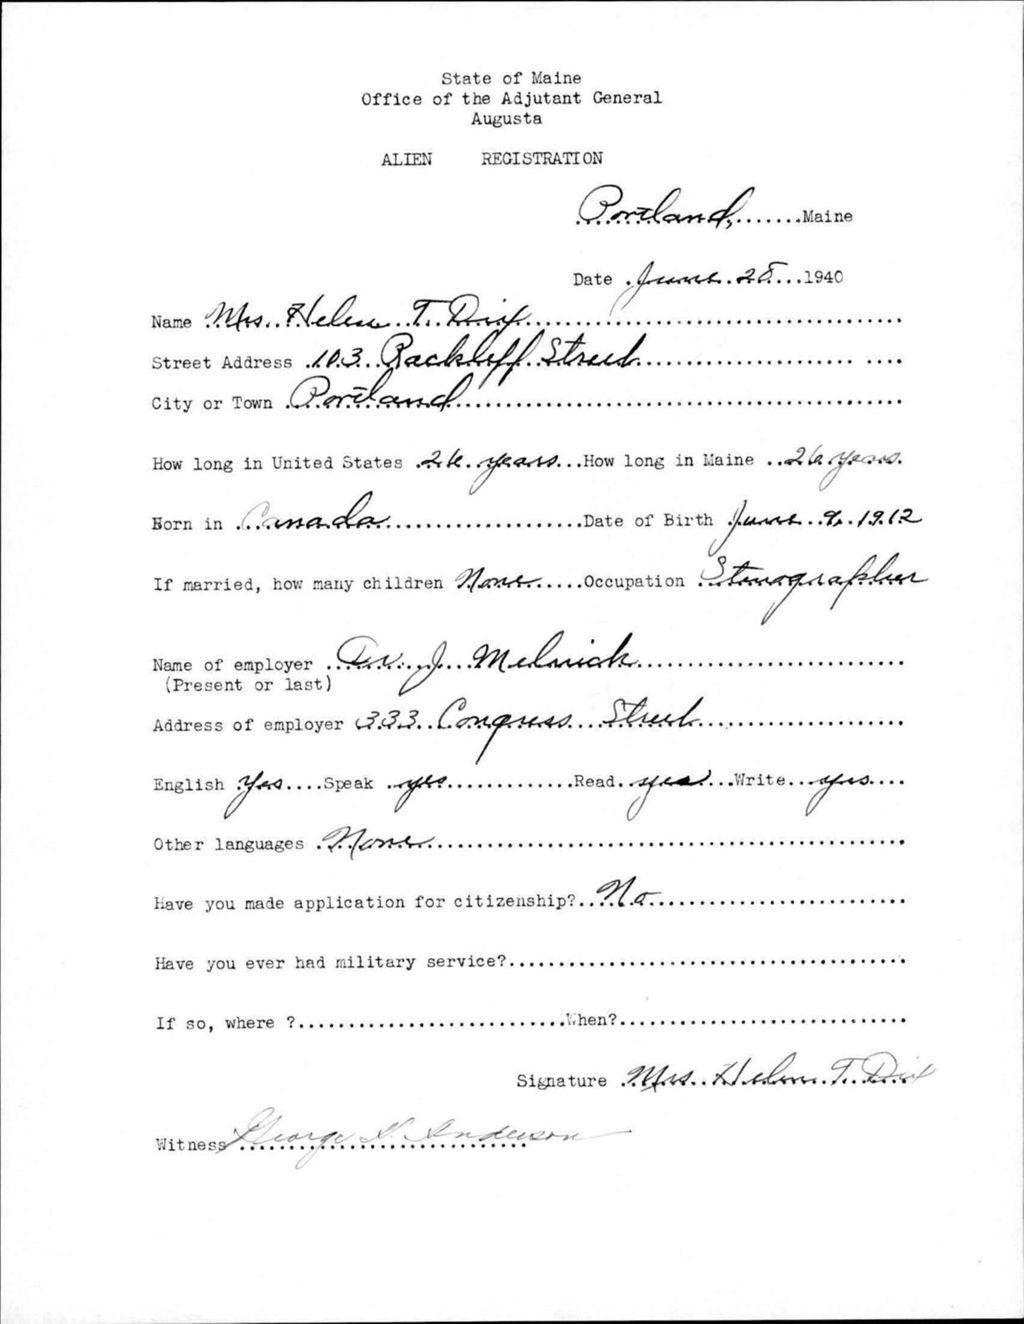 State of Maine
Office of the Adjutant General
Augusta
ALIEN REGISTRATION
Portland, Maine
Date June 28 1940
Name Mrs. Helen T. Dix
Street Address 103 Rackleff Street
City or Town Portland
How long in United States 26 years How long in Maine 26 years.
Born in Canada Date of Birth June 9, 1912
If married, how many children None Occupation Stenographer
Name of employer Dr. J. Melnick
(Present or last)
Address of employer 333 Congress Street
English Yes Speak yes Read yes Write yes
Other languages None
Have you made application for citizenship? No
Have you ever had military service?
If so, where ? When?
Signature Mrs. Helen T. Dix
Witness George Anderson